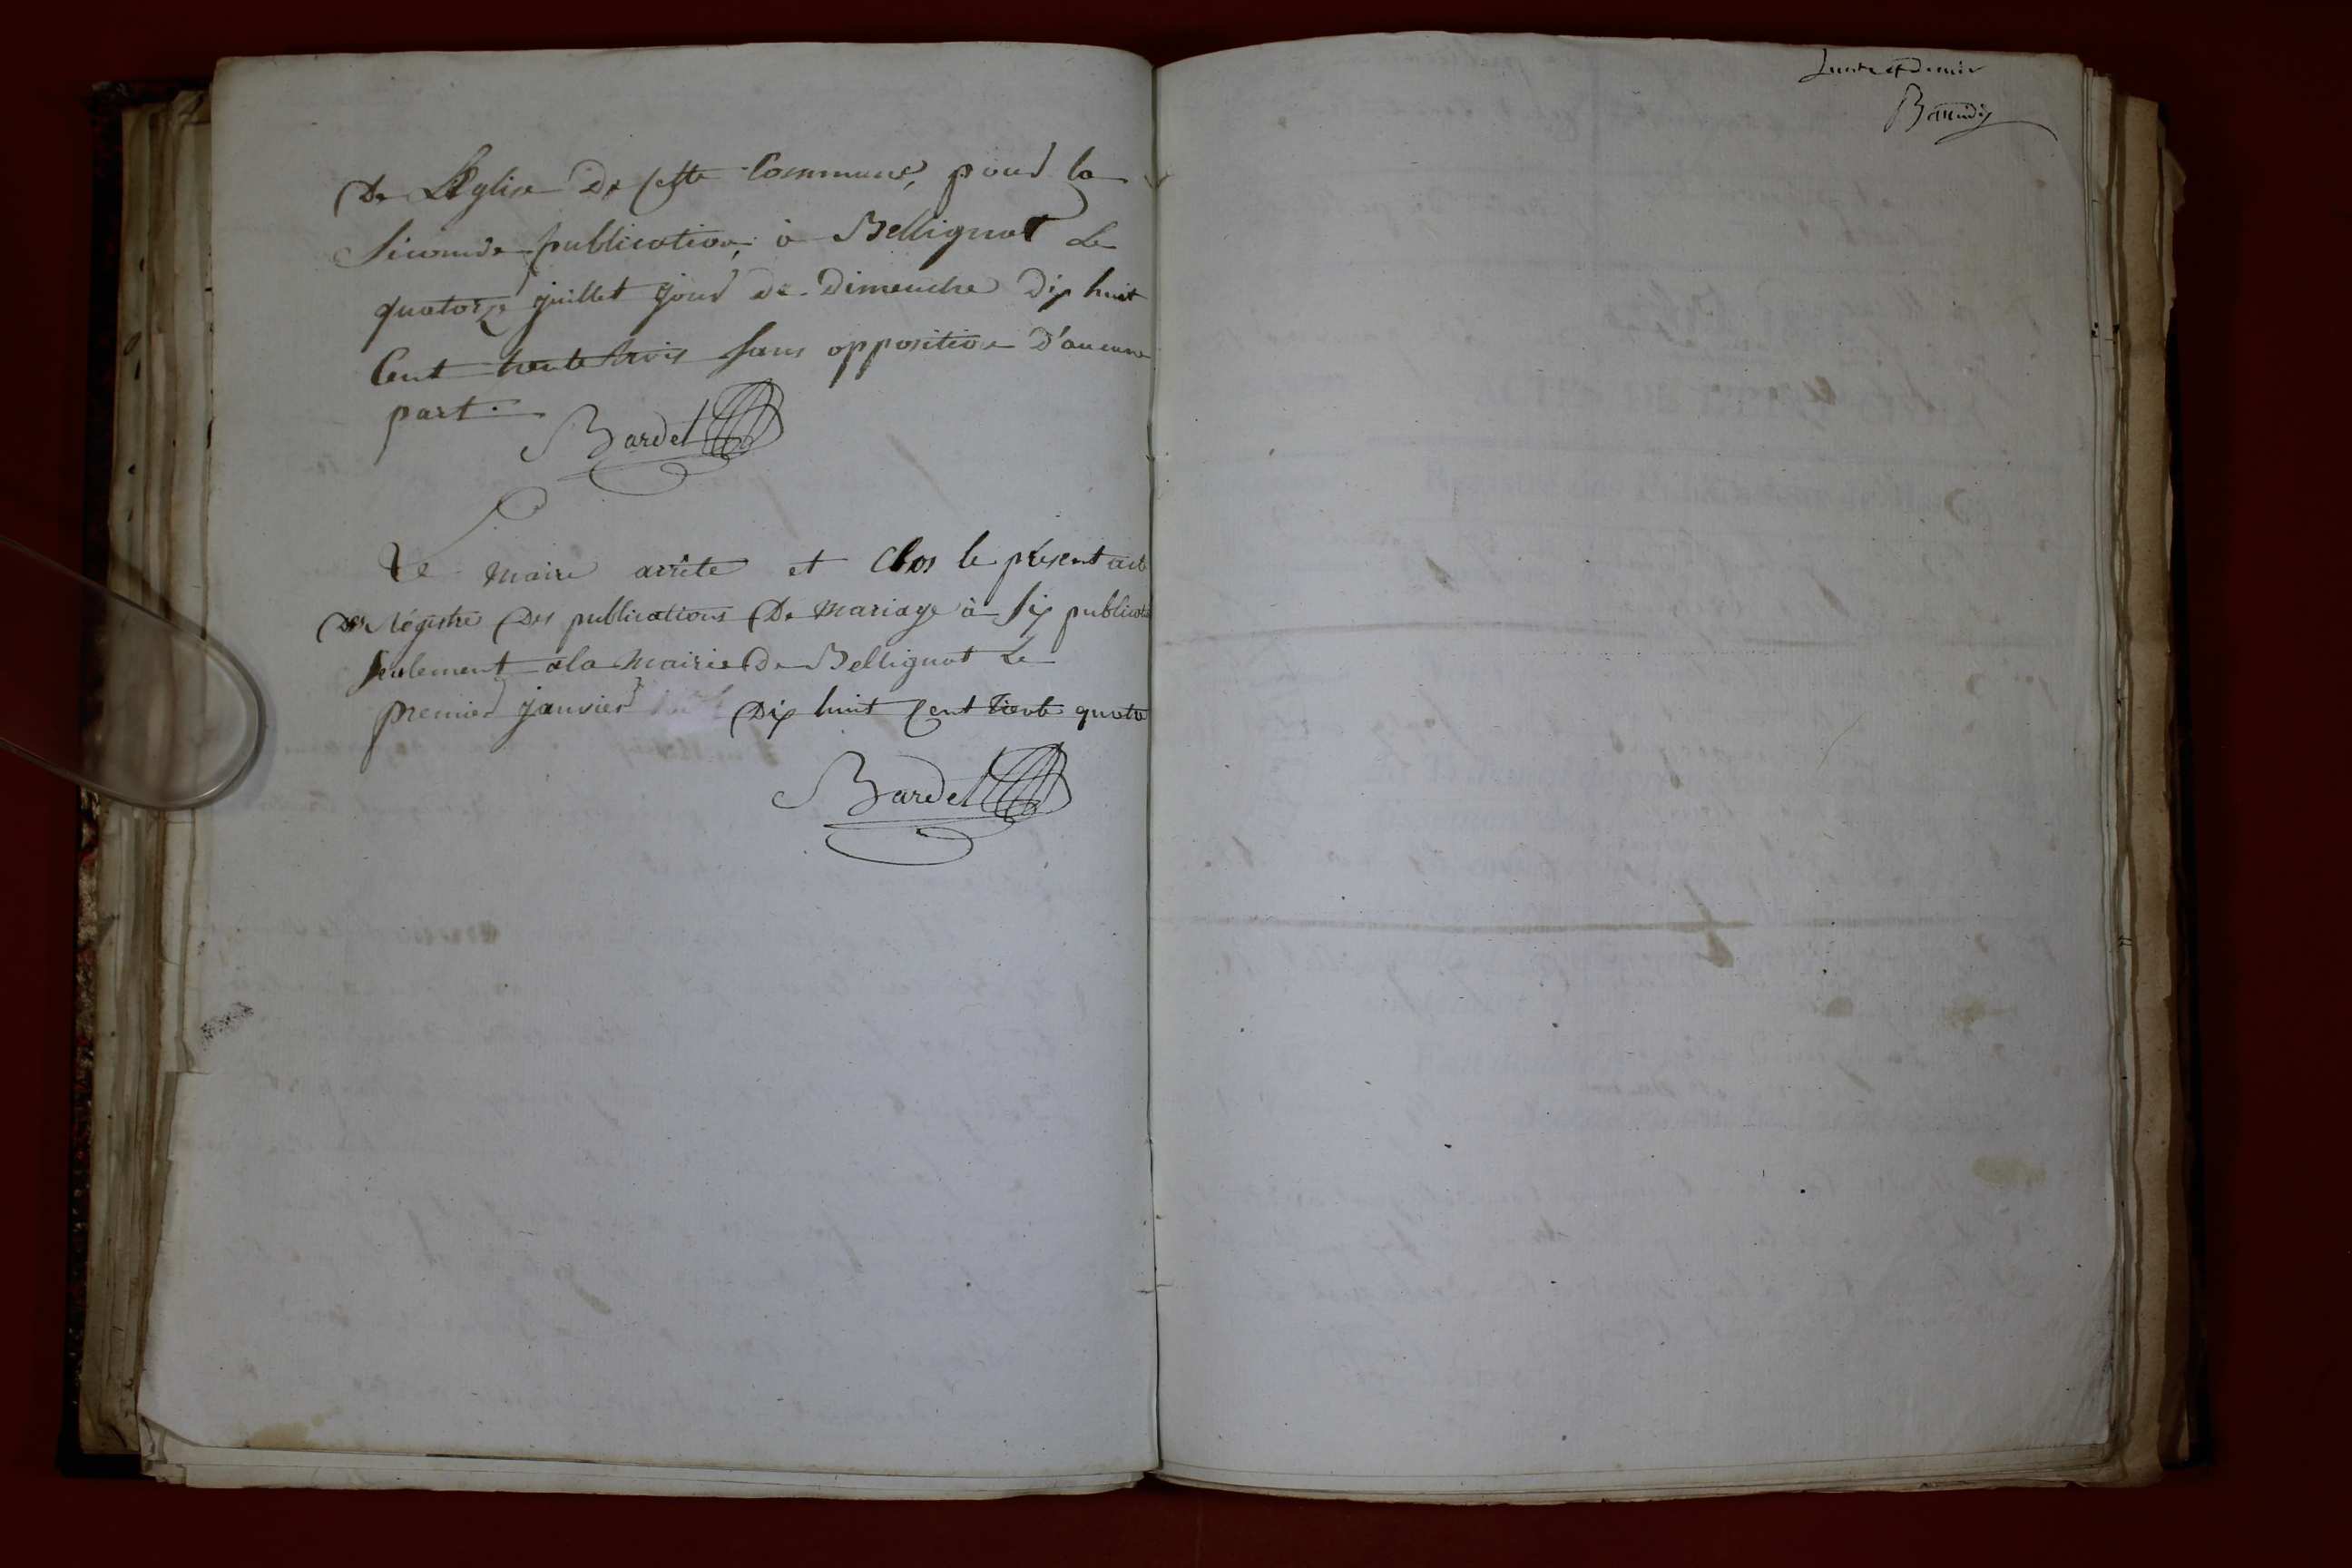 De L'Eglise De Cette Commune, pour la
Seconde publication, à Bellignat Le
quatorze juillet jour de Dimenche Dix huit
Cent trente trois sans opposition D'aucune
part.
Bardet
Le Maire arrête et Clos le présent
Régistre Des publications De Mariage à Six publicat
Seulement ala Mairie De Bellignat Le
premier janvier Dix huit Cent trente quatre
Bardet
et dernier